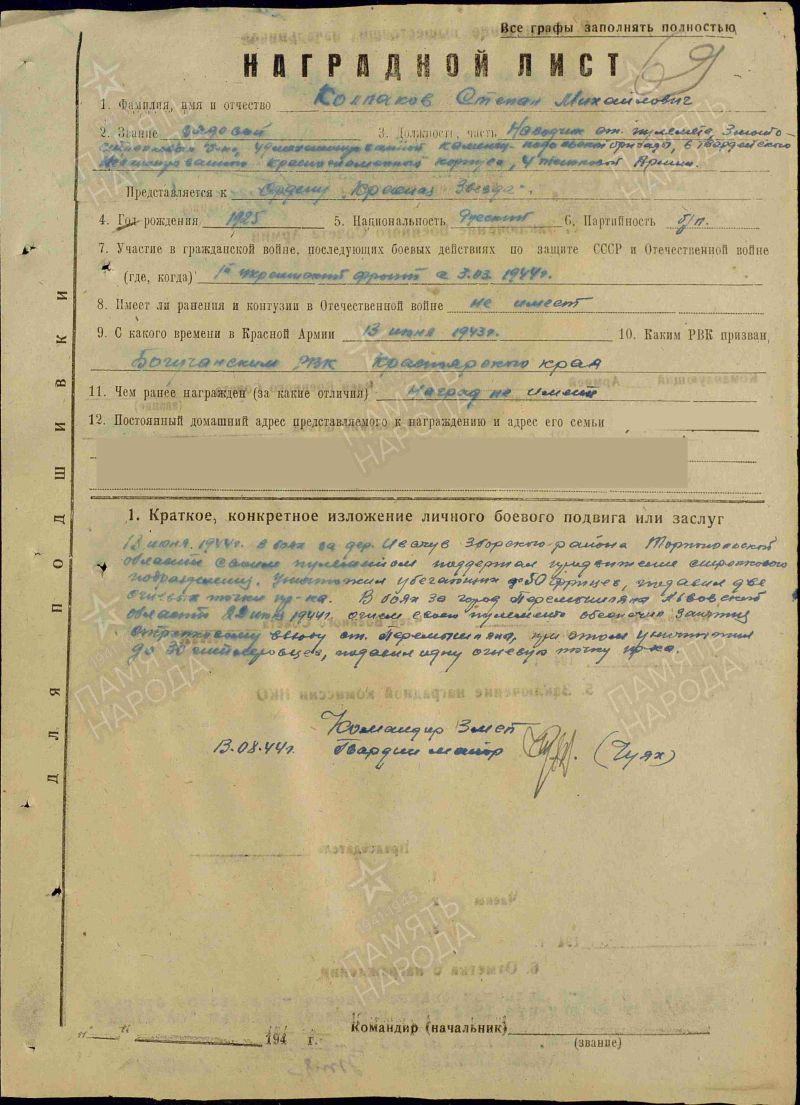 Все графы заполнять полностью
НАГРАДНОЙ ЛИСТ
69
1. Фамилия, имя и отчество Колпаков Степан Михайлович
2. Звание рядовой 3. Должность, часть Наводчик ст. пулемета, 3 мото-
стрелкового б-на, 17 механизированной бригады, 6 Гвардейского
механизированного краснознаменного корпуса, 4 танковой Армии.
Представляется к Ордену "Красная Звезда".
4. Год рождения 1925 5. Национальность Русский 6. Партийность б/п.
7. Участие в гражданской войне, последующих боевых действиях по защите СССР и Отечественной войне
(где, когда) 1й украинский фронт с 3.03.1944г.
8. Имеет ли ранения и контузии в Отечественной войне не имеет
9. С какого времени в Красной Армии 13 июня 1943г. 10. Каким РВК призван,
Богучанским РВК Красноярского края
11. Чем ранее награжден (за какие отличия) Наград не имеет
12. Постоянный домашний адрес представляемого к награждению и адрес его семьи
1. Краткое, конкретное изложение личного боевого подвига или заслуг
18 июня 1944г. в боях за дер. Зборского района Тарнопольской
области своим пулеметом поддержал продвижение стрелкового
подразделения. Уничтожил убегающих до 50 фрицев, подавил две
огневых точки пр-ка. В боях за город Перемышляны Львовской
области 22 1944г. огнем своего пулемета обеспечил
ст. Перемышляны, при этом уничтожил
до 30 гитлеровцев, подавил одну огневую точку пр-ка.
Командир 3 мсб
13.08.44г. Гвардии майор (Чуях)
ДЛЯ ПОДШИВКИ
194 г. Командир (начальник)
(звание)
1941-1945
ПАМЯТЬ НАРОДА